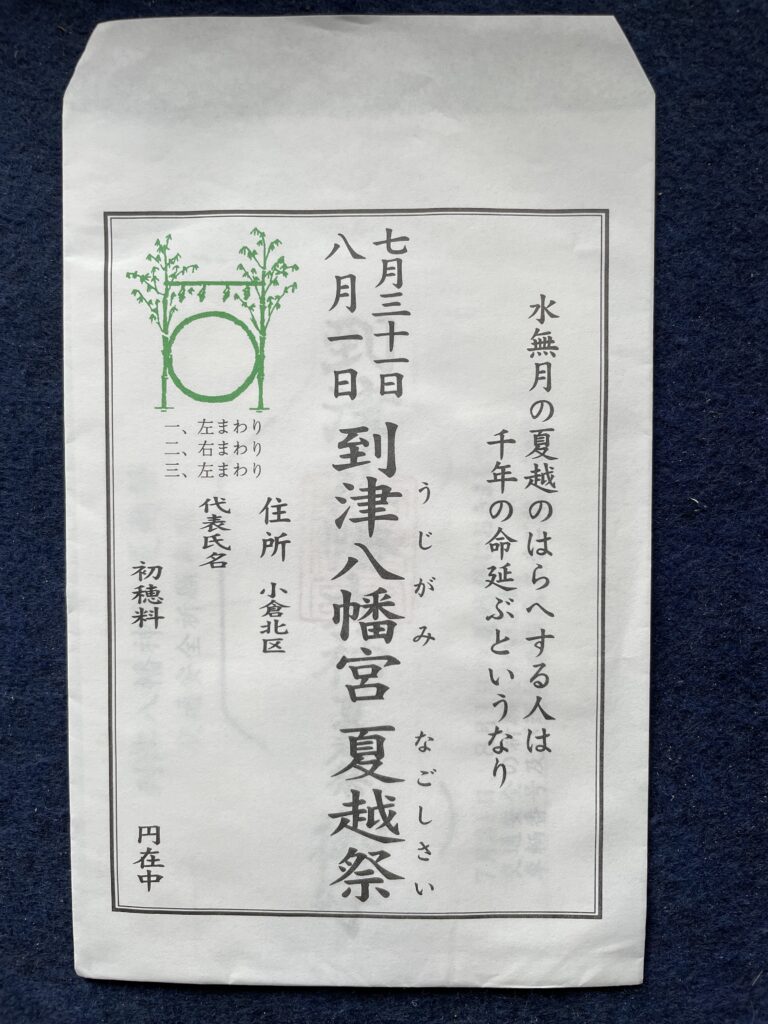 水無月の夏越のはらへする人は
千年の命延ぶというなり
七月三十一日
八月一日
到津八幡宮 夏越祭
うじがみ なごしさい
一、左まわり
二、右まわり
三、左まわり
住所 小倉北区
代表氏名
初穂料 円在中